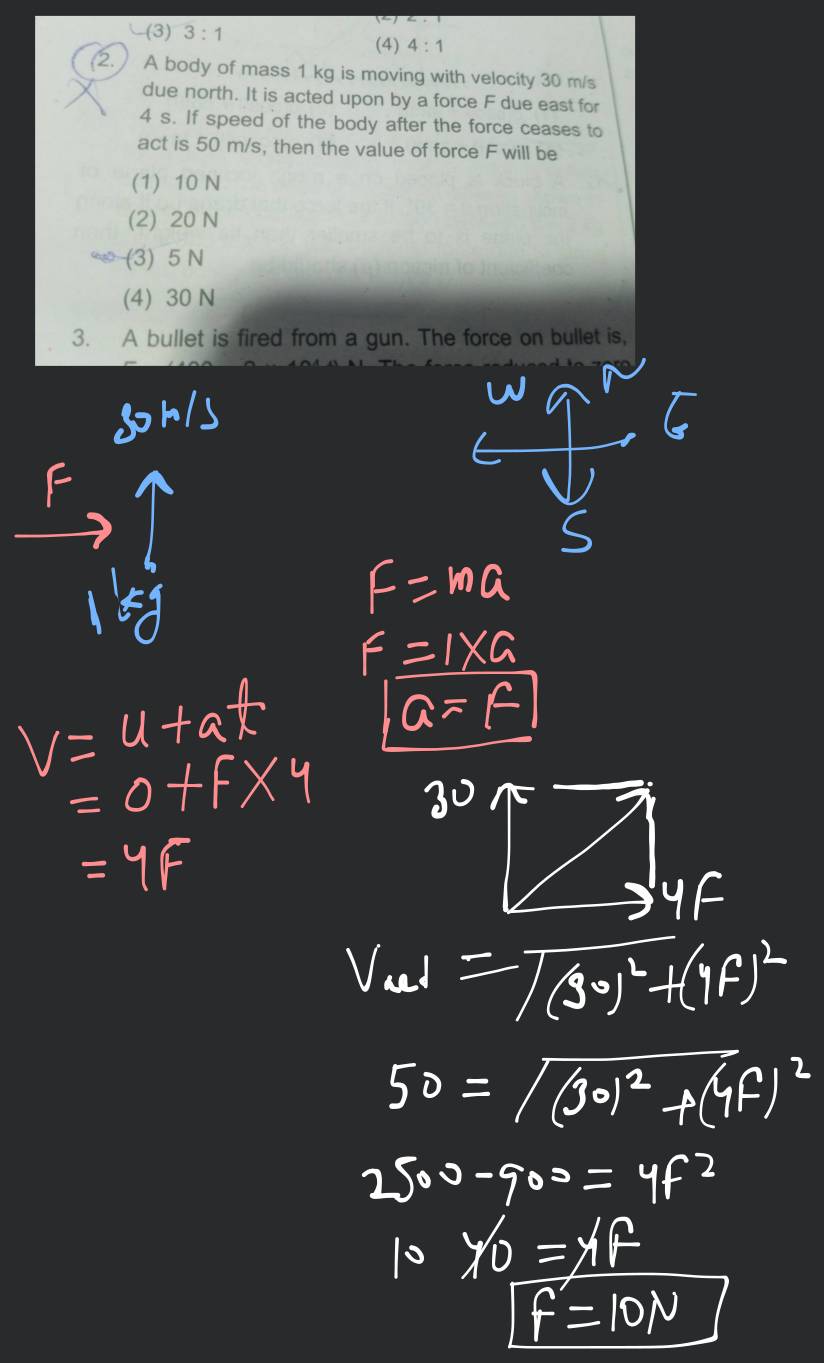 (3) 3 : 1
(4) 4 : 1
2. A body of mass 1 kg is moving with velocity 30 m/s
due north. It is acted upon by a force F due east for
4 s. If speed of the body after the force ceases to
act is 50 m/s, then the value of force F will be
(1) 10 N
(2) 20 N
(3) 5 N
(4) 30 N
3. A bullet is fired from a gun. The force on bullet is,
W N E
S
30 m/s
F
1 kg
F = ma
F = 1 × a
a = F
V = u + at
= 0 + F × 4
= 4F
30
4F
V = √(30)² + (4F)²
50 = √(30)² + (4F)²
2500 - 900 = 4F²
10 40 = 4F
F = 10N